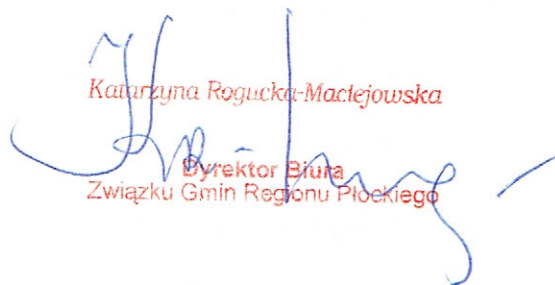 Katarzyna Rogucka-Maciejowska
Dyrektor Biura
Związku Gmin Regionu Płockiego